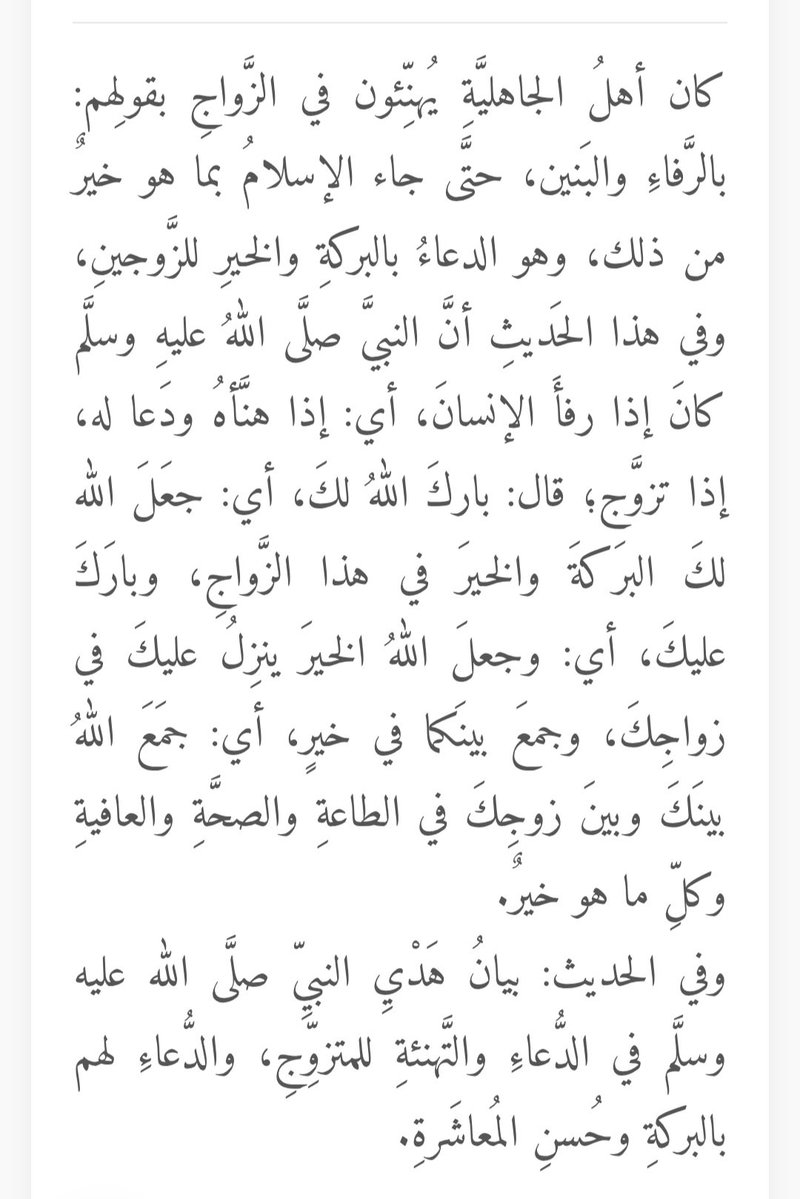 كان أهلُ الجاهليَّةِ يُهنِّئون في الزَّواجِ بقولِهم:
بالرَّفاءِ والبَنين، حتَّى جاء الإسلامُ بما هو خيرٌ
من ذلك، وهو الدعاءُ بالبركةِ والخيرِ للزَّوجينِ،
وفي هذا الحَديثِ أنَّ النبيَّ صلَّى اللهُ عليهِ وسلَّم
كانَ إذا رفأَ الإنسانَ، أي: إذا هنَّأهُ ودَعا له،
إذا تزوَّج؛ قال: باركَ اللهُ لكَ، أي: جعَلَ الله
لكَ البرَكةَ والخيرَ في هذا الزَّواجِ، وبارَكَ
عليكَ، أي: وجعلَ اللهُ الخيرَ ينزِلُ عليكَ في
زواجِكَ، وجمعَ بينَكما في خيرٍ، أي: جمَعَ اللهُ
بينَكَ وبينَ زوجِكَ في الطاعةِ والصحَّةِ والعافيةِ
وكلِّ ما هو خيرٌ.
وفي الحديث: بيانُ هَدْيِ النبيِّ صلَّى الله عليه
وسلَّم في الدُّعاءِ والتَّهنئةِ للمتزوِّجِ، والدُّعاءِ لهم
بالبركةِ وحُسنِ المُعاشَرةِ.